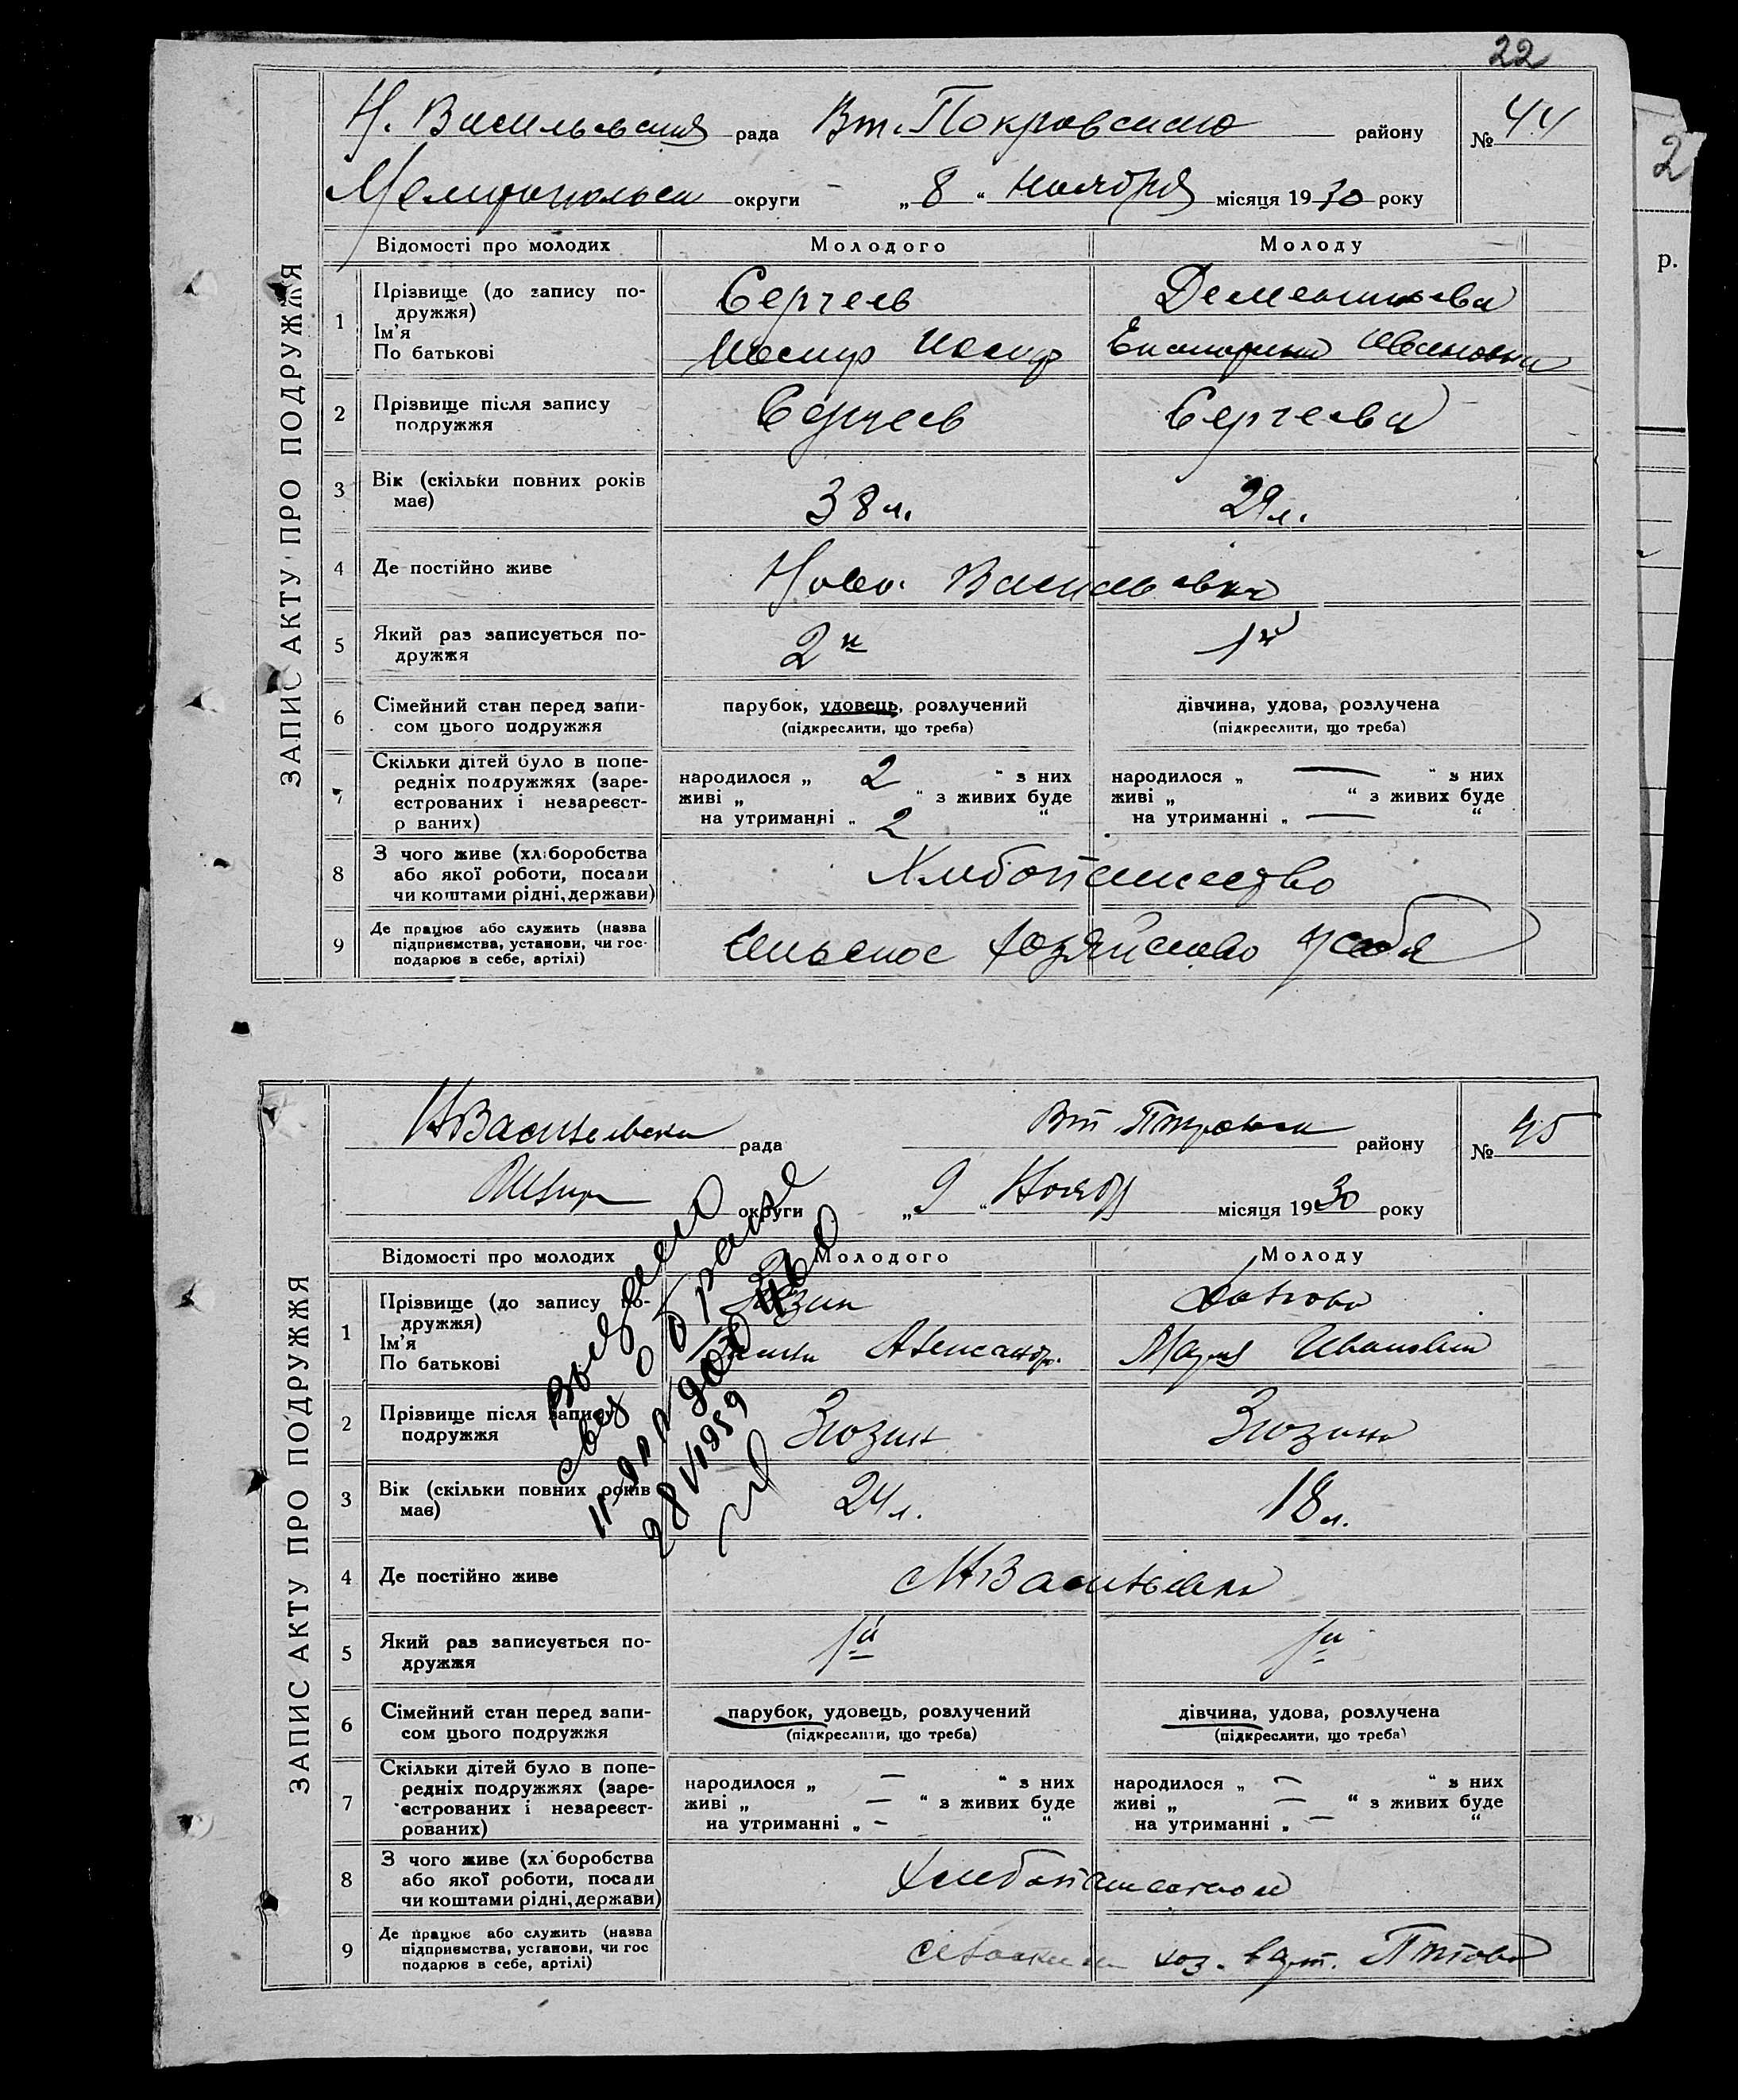 22
Н. Васильевская рада Вт. Покровского району № 44
Мелитопольск округи „ 8 “ Ноября місяця 1930 року
ЗАПИС АКТУ ПРО ПОДРУЖЖЯ
Відомості про молодих Молодого Молоду
1 Прізвище (до запису по- Сергеев Дементьева
дружжя)
Ім'я
По батькові Иосиф Иосиф Екатерина Ивановна
2 Прізвище після запису Сергеев Сергеева
подружжя
3 Вік (скільки повних років 38 л. 29 л.
має)
4 Де постійно живе Ново. Васильевка
5 Який раз записується по- 2й 1й
дружжя
6 Сімейний стан перед запи- парубок, удовець, розлучений дівчина, удова, розлучена
сом цього подружжя (підкреслити, що треба) (підкреслити, що треба)
7 Скільки дітей було в попе-
редніх подружжях (заре- народилося „ 2 “ з них народилося „ — “ з них
єстрованих і незареєст- живі „ “ з живих буде живі „ “ з живих буде
р ваних) на утриманні „ 2 “ на утриманні „ — “
8 З чого живе (хліборобства
або якої роботи, посади Хлибопашество
чи коштами рідні, держави)
9 Де працює або служить (назва
підприємства, установи, чи гос- Сельское хозяйство у себя
подарює в себе, артілі)
2
р.
НВасильевска рада Вт Покровск району № 45
округи „ 9 “ Ноябр місяця 1930 року
ЗАПИС АКТУ ПРО ПОДРУЖЖЯ
Відомості про молодих Молодого Молоду
1 Прізвище (до запису по- Зюзин
дружжя)
Ім'я
По батькові Александр. Мария Ивановна
2 Прізвище після запису Зюзин Зюзина
подружжя
3 Вік (скільки повних років 24 л. 18 л.
має)
4 Де постійно живе Н Васильевка
5 Який раз записується по- 1й 1й
дружжя
6 Сімейний стан перед запи- парубок, удовець, розлучений дівчина, удова, розлучена
сом цього подружжя (підкреслити, що треба) (підкреслити, що треба)
7 Скільки дітей було в попе-
редніх подружжях (заре- народилося „ — “ з них народилося „ — “ з них
єстрованих і незареєст- живі „ — “ з живих буде живі „ — “ з живих буде
рованих) на утриманні „ — “ на утриманні „ — “
8 З чого живе (хл боробства
або якої роботи, посади Хлебопашеством
чи коштами рідні, держави)
9 Де працює або служить (назва
підприємства, установи, чи гос хоз. в арт.
подарює в себе, артілі)
свид о браке